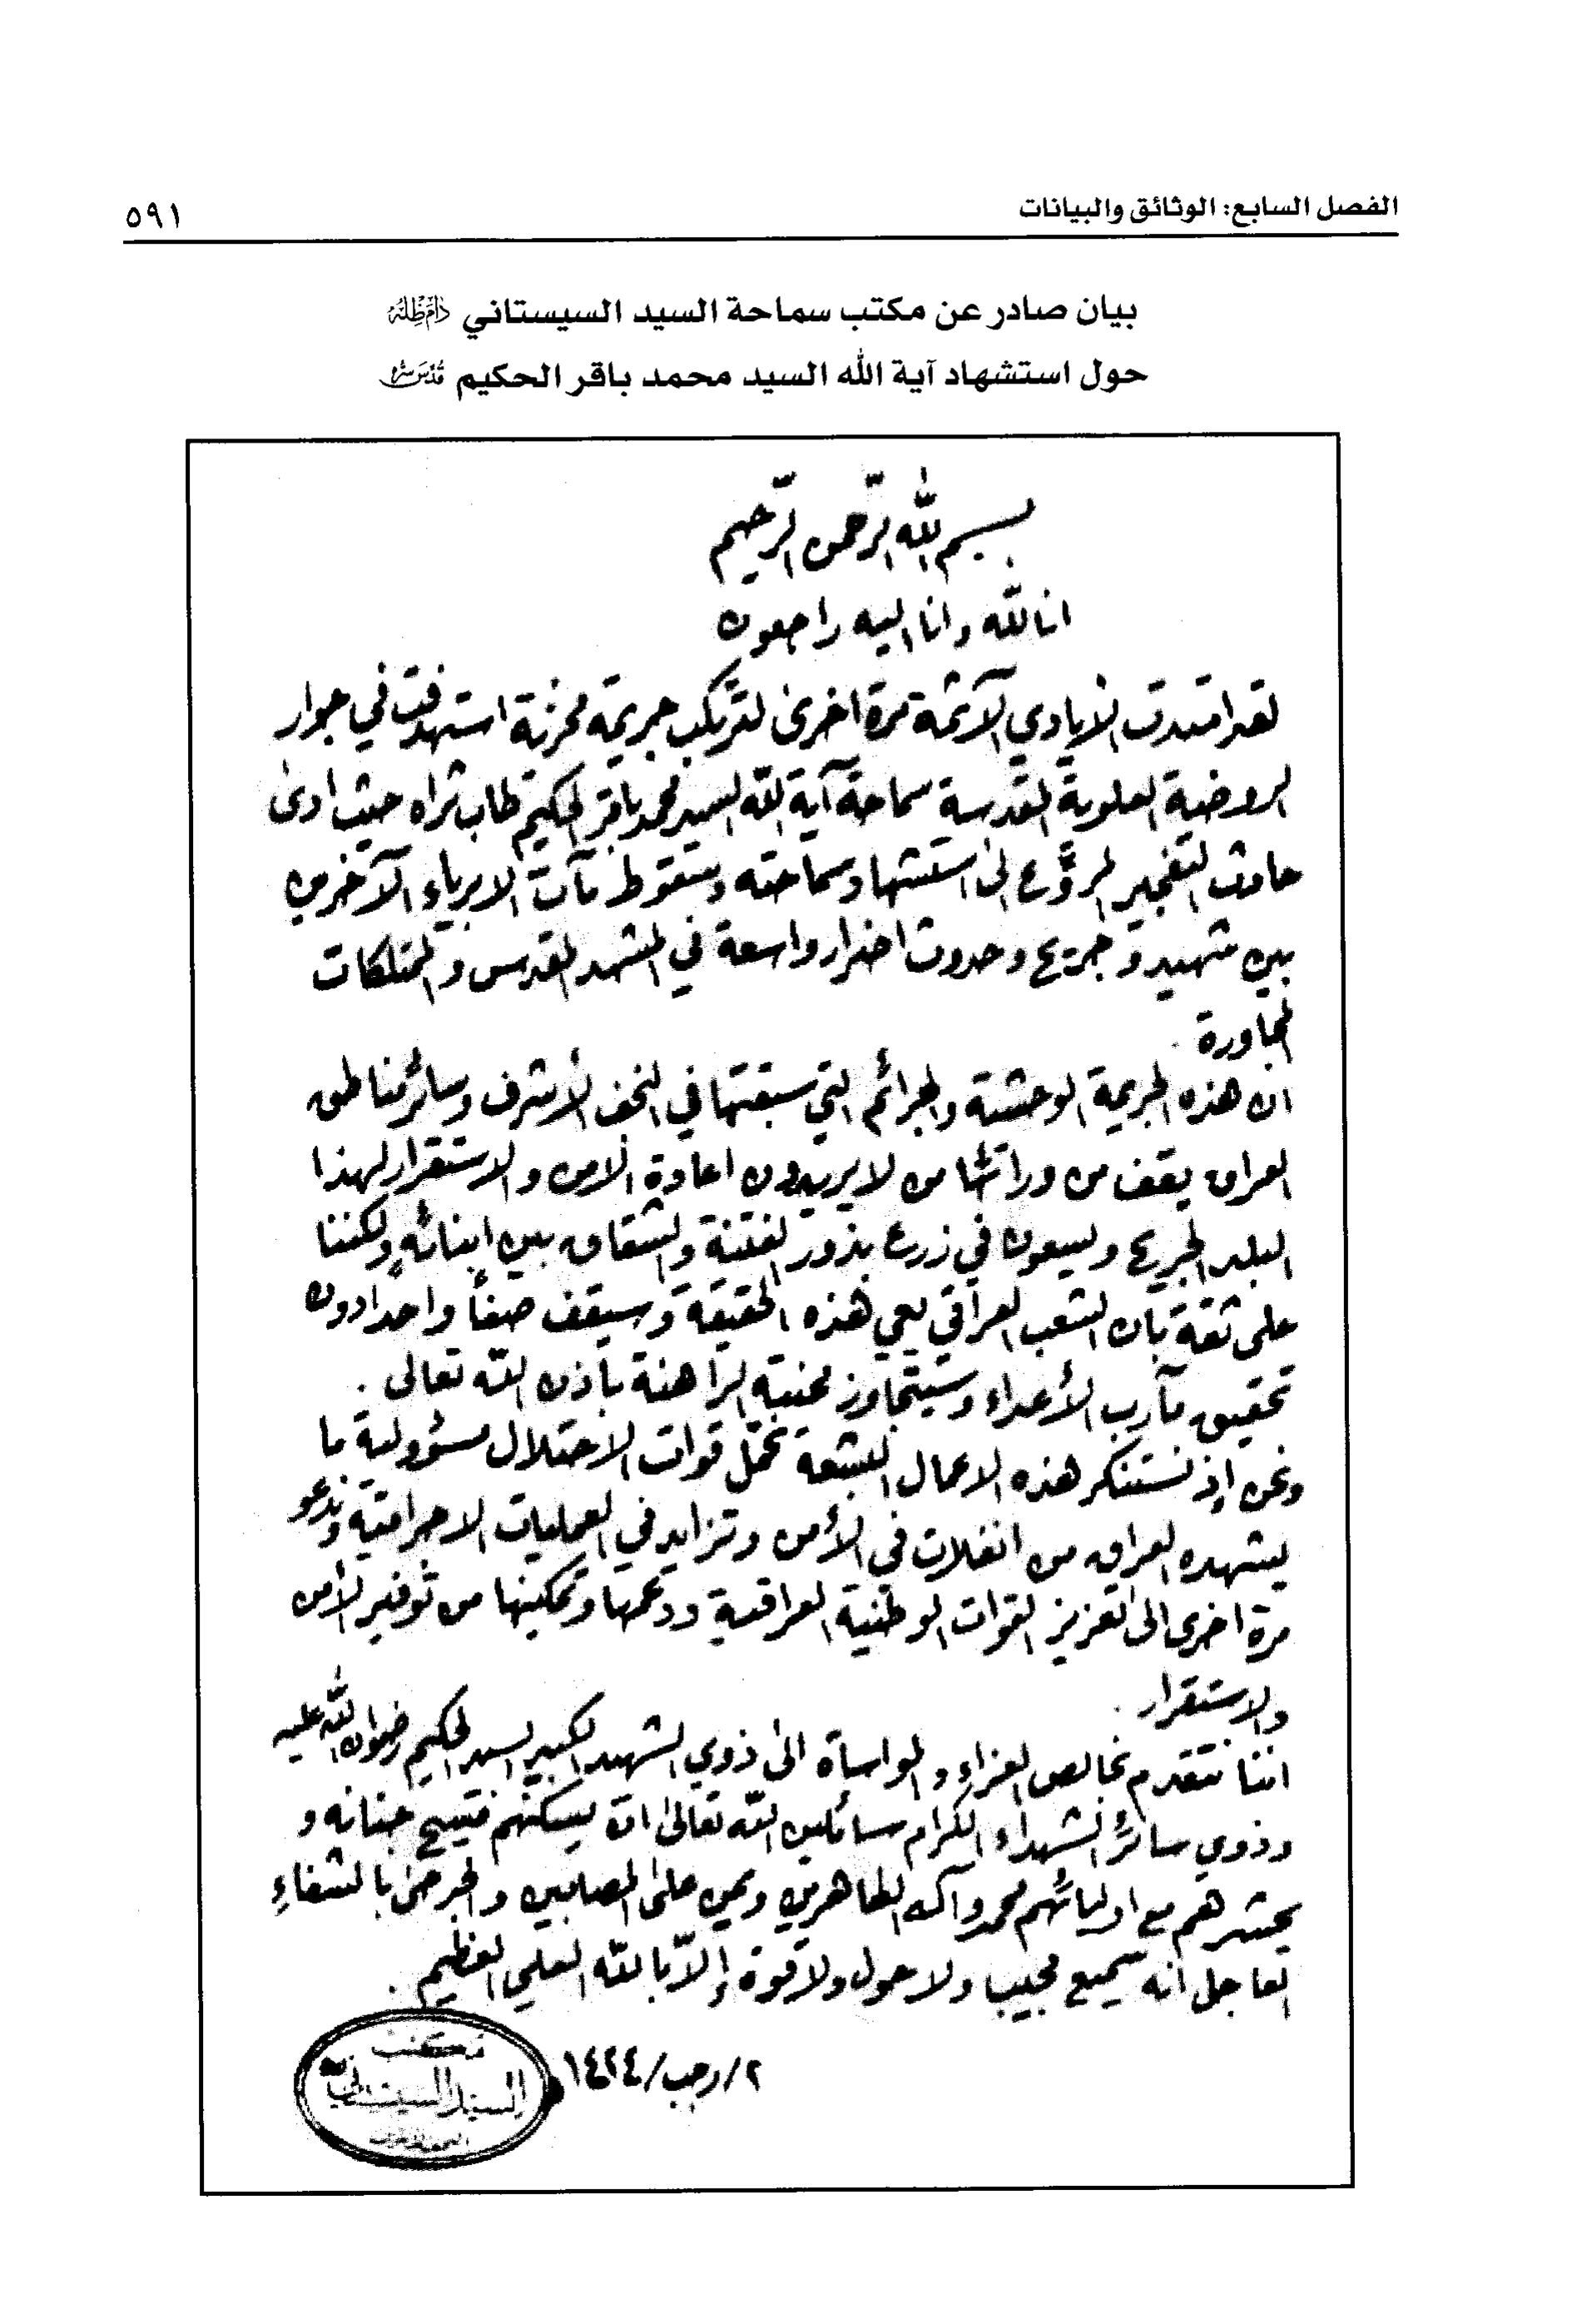 الفصل السابع: الوثائق والبيانات
٥٩١
بيان صادر عن مكتب سماحة السيد السيستاني دام ظله
حول استشهاد آية الله السيد محمد باقر الحكيم قدس سره
بسم الله الرّحمن الرّحيم
انا لله وانا اليه راجعون
لقد امتدت الايادي الآثمة مرة اخرى لترتكب جريمة محزنة استهدفت في جوار
الروضة العلوية المقدسة سماحة آية الله السيد محمد باقر الحكيم طاب ثراه حيث ادى
حادث التفجير المروّع الى استشهاد سماحته وسقوط مآت الابرياء الآخرين
بين شهيد و جريح و حدوث اضرار واسعة في المشهد المقدس والممتلكات
المجاورة .
ان هذه الجريمة الوحشية والجرائم التي سبقتها في النجف الأشرف وسائر مناطق
العراق يقف من ورائها من لا يريدون اعادة الامن والاستقرار لهذا
البلد الجريح ويسعون في زرع بذور الفتنة والشقاق بين ابنائه ولكننا
على ثقة بان الشعب العراقي يعي هذه الحقيقة وسيقف صفاً واحدا دون
تحقيق مآرب الأعداء وسيتجاوز محنته الراهنة باذن الله تعالى .
ونحن إذ نستنكر هذه الاعمال البشعة نحمّل قوات الاحتلال مسؤولية ما
يشهده العراق من انفلات في الأمن وتزايد في العمليات الاجرامية وندعو
مرة اخرى الى تعزيز القوات الوطنية العراقية ودعمها وتمكينها من توفير الأمن
والاستقرار .
اننا نتقدم بخالص العزاء والمواساة الى ذوي الشهيد الكبير السيد الحكيم رضوان الله عليه
وذوي سائر الشهداء الكرام سائلين الله تعالى ان يسكنهم فسيح جنانه و
يحشرهم مع اوليائهم محمد وآله الطاهرين ويمن على المصابين والجرحى بالشفاء
العاجل انه سميع مجيب ولا حول ولا قوة إلاّ بالله العلي العظيم .
٢/رجب/١٤٢٤
مكتب
السيد السيستاني
النجف الاشرف